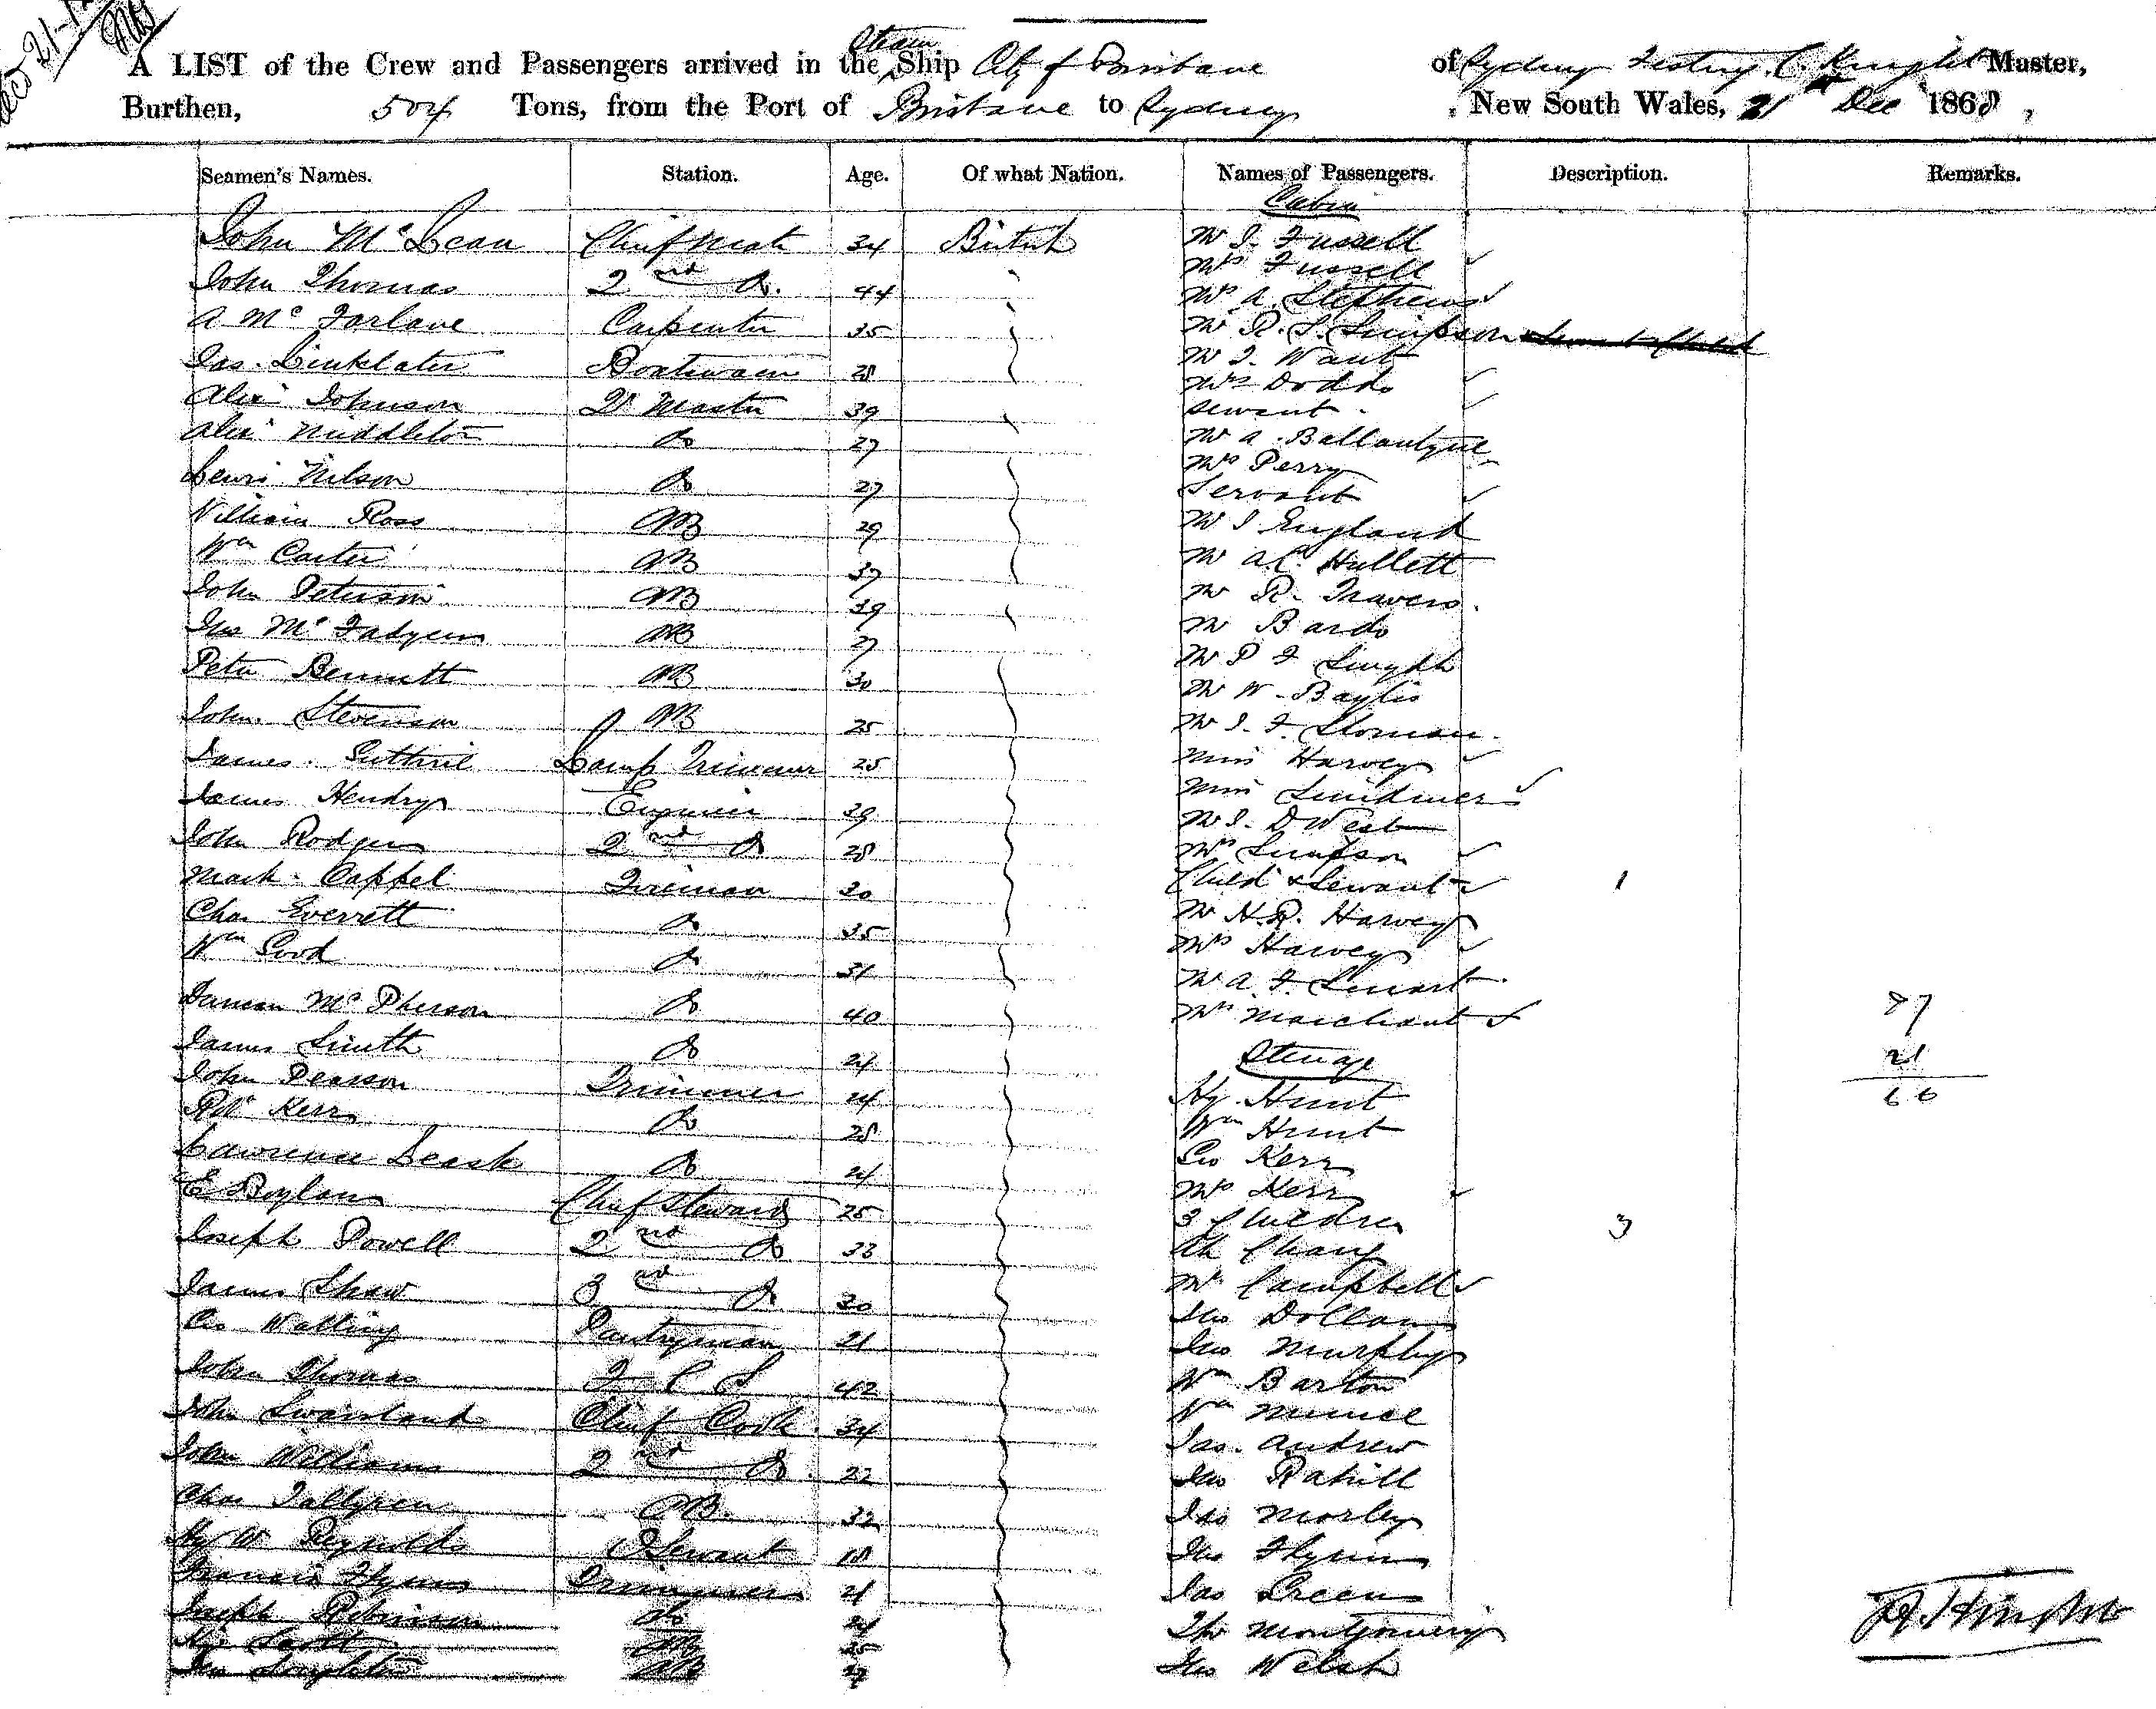 Steam
A LIST of the Crew and Passengers arrived in the Ship City of Brisbane of Sydney Knight Master,
Burthen, 504 Tons, from the Port of Brisbane to Sydney, New South Wales, 21st Dec 1868,
Seamen's Names. Station. Age. Of what Nation. Names of Passengers. Description. Remarks.
Cabin
John McLean Chief Mate 34 British Mr J. Fussell
Mrs Fussell
John Thomas 2nd Do. 44 Mrs A. Stephens
A McFarlane Carpenter 35 Mr R. S. Simpson
Jas. Linklater Boatswain 28 Mr J. Want
Mrs Dodds
Alexr Johnson Qr Master 39 Servant
Alexr Middleton Do 27 Mr A. Ballantyne
Mrs Perry
Lewis Nilson Do 27 Servant
William Ross AB 29 Mr J England
Wm Carter AB 37 Mr A.C. Hullett
John Peterson AB 39 Mr R. Travers.
Jno McFadyen AB 27 Mr Bards
Peter Bennett AB 30 Mr P F Smyth
Mr W. Baylis
John Stevenson AB 25 Mr J. F. Sloman.
James Guthrie Lamp Trimmer 25 Miss Harvey
James Hendry Engineer 39 Miss
Mr J. D West
John Rodgers 2nd Do 28 Mrs Simpson
Mark Cappel Fireman 30 Child & Servant 1
Chas Everrett Do 35 Mr H.R. Harvey
Wm Good Do 31 Mrs Harvey
Mr A. F. Smart
Duncan McPherson Do 40 Mrs Marchant 87
James Smith Do 24 Steerage 21
John Pearson Trimmer 24 Hy. Hunt 66
R W Kerr Do 28 Wm Hunt
Lawrence Leask Do 24 Geo Kerr
E Boylan Chief Steward 25 Mrs Kerr
3 Children 3
Joseph Powell 2nd Do 33 Ah Chang
James Shaw 3rd Do 30 Mrs Campbell
Geo Watling Pantryman 21 Jno Dollan
Jno Murphy
John Thomas F C S 42 Wm Barton
John Swainland Chief Cook 34 Wm
John Williams 2nd Do. 22 Jas. Andrew
Jno Rahill
Chas Tallgren AB. 32 Jas Morley
Hy W Reynolds Servant 18 Jno Flynn
Francis Flynn Trimmer 21 Jas Green
Joseph Robinson Do 24 Thos Montgomery
Hy Scott AB 25
Jno Singleton AB 27 Jno Welsh